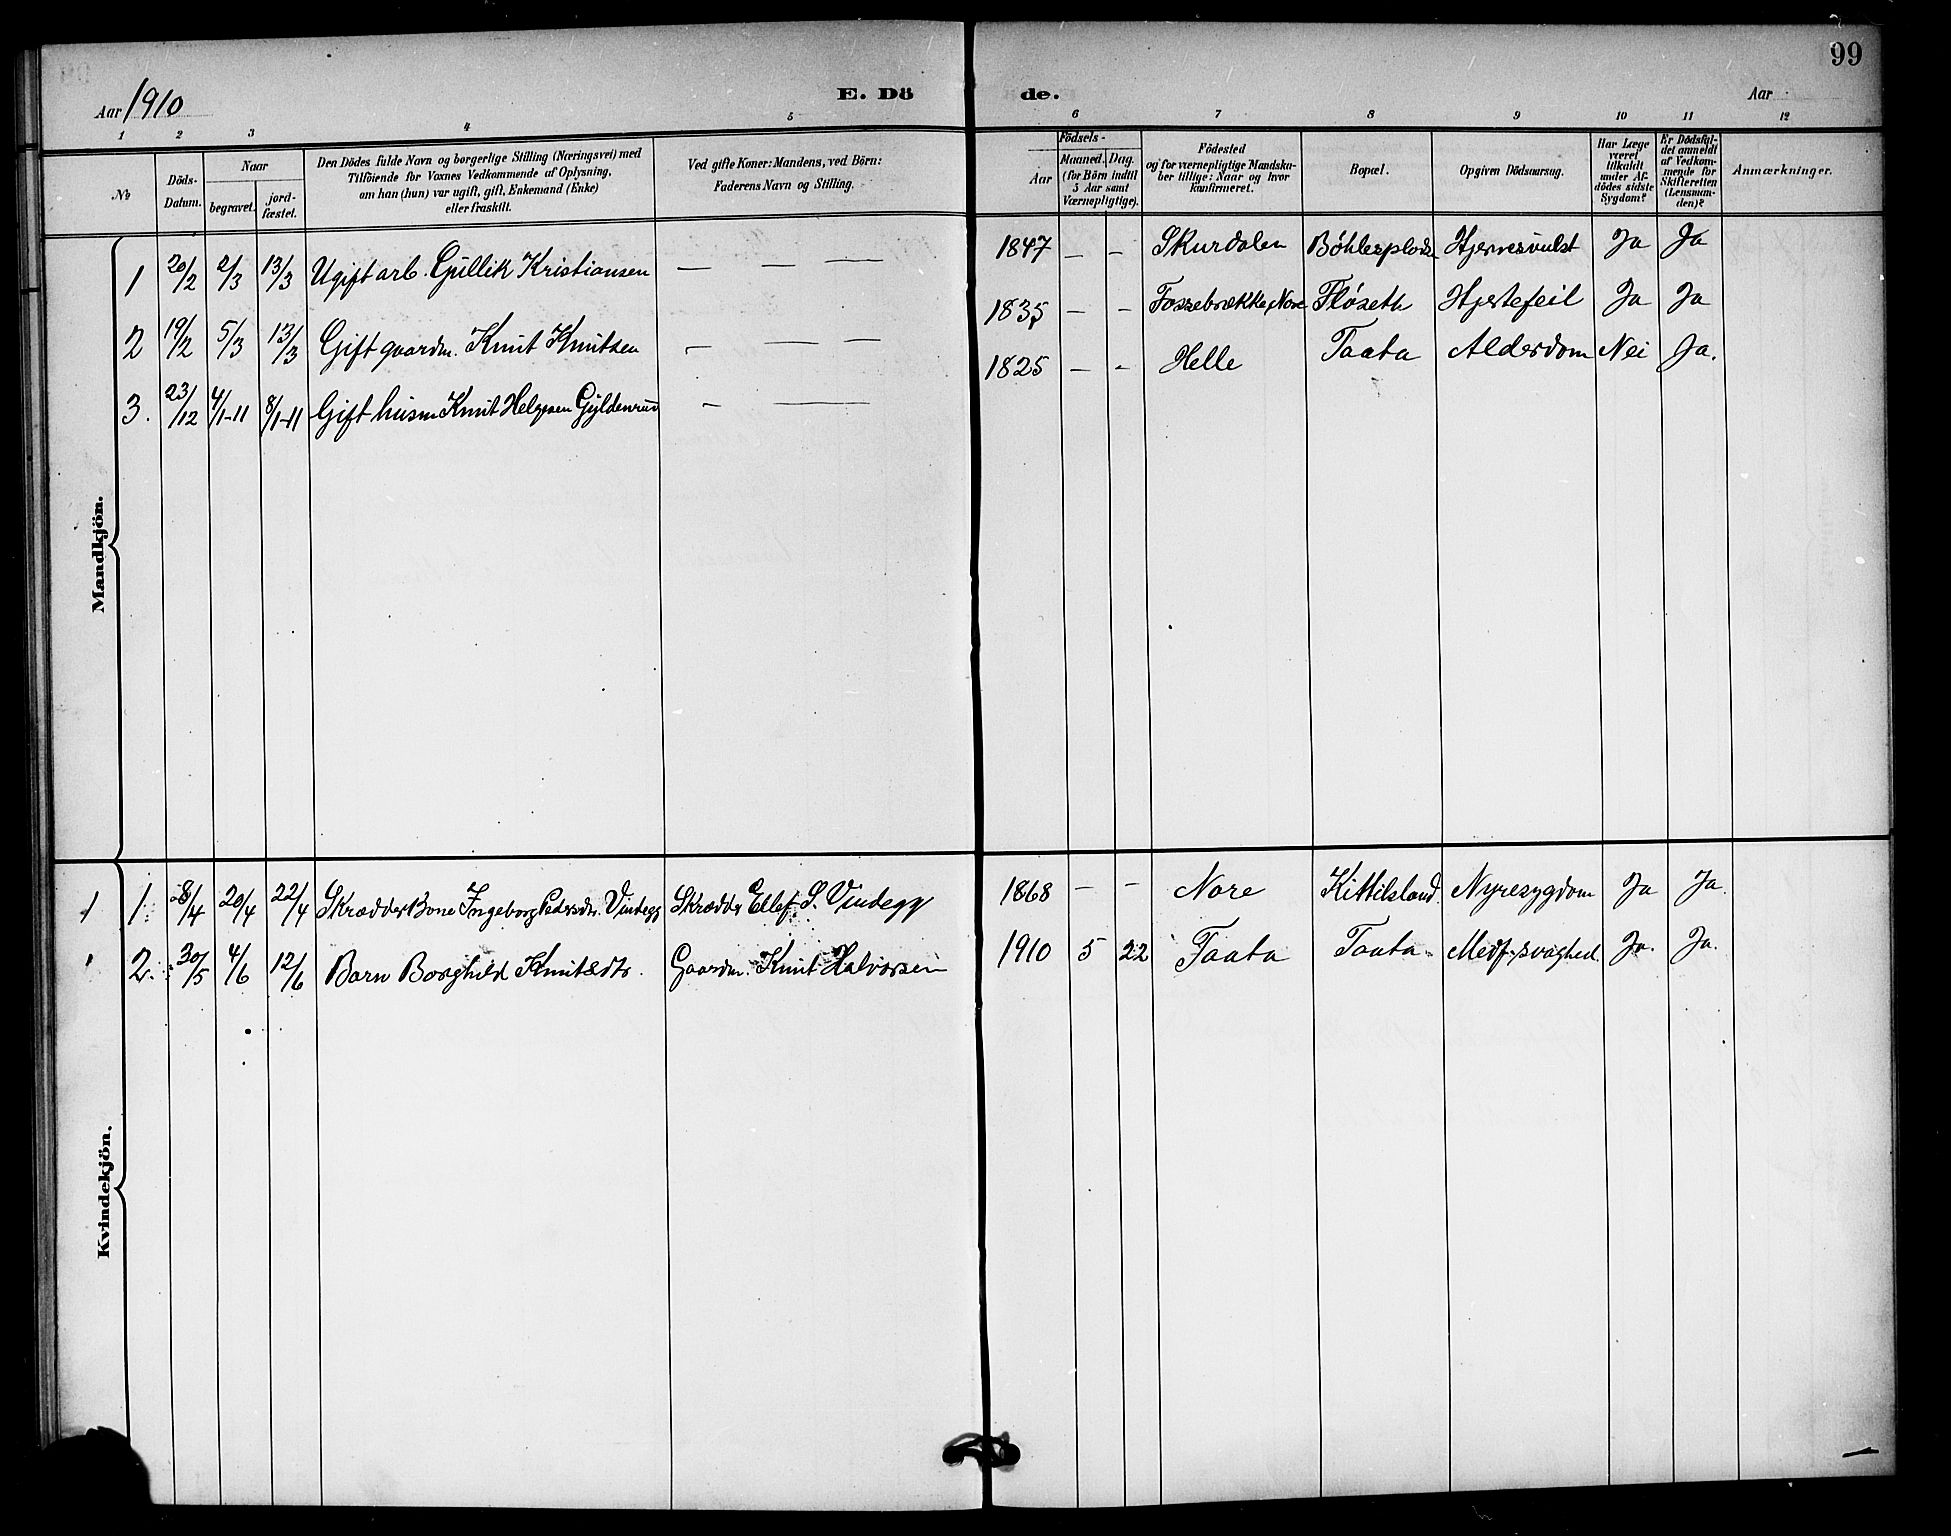 99
Aar 1910
E. Dö de.
Aar
1 2 3 4 5 6 7 8 9 10 11 12
№
Döds-Datum.
Naar
begravet.
jord-fæstet.
Den Dödes fulde Navn og borgerlige Stilling (Næringsvei) med
Tilföiende for Voxnes Vedkommende af Oplysning,
om han (hun) var ugift, gift, Enkemand (Enke)
eller fraskilt.
Ved gifte Koner: Mandens, ved Börn:
Faderens Navn og Stilling.
Födsels-
Aar
Maaned. Dag.
(for Börn indtil
5 Aar samt
Værnepligtige).
Födested
og for værnepligtige Mandska-
ber tillige: Naar og hvor
konfirmeret.
Bopæl.
Opgiven Dödsaarsag.
Har Læge
været
tilkaldt
under Af-
dödes sidste
Sygdom?
Er Dödsfal-
det anmeldt
af Vedkom-
mende for
Skifteretten
(Lensman-
den)?
Anmærkninger.
Mandkjön.
1 20/2 2/3 13/3 Ugift arb. Gullik Kristiansen — — — 1847 — — Skurdalen Hjernesvulst Ja Ja
2 19/2 5/3 13/3 Gift gaardm. Knut Knutsen — — — 1835 — — Fossebrække, Nore Fløseth Hjertefeil Ja Ja
3. 23/12 4/1-11 8/1-11 Gift husm Knut Helgesen Gyldenrud — — 1825 — — Helle Taata Alderdom Nei Ja.
Kvindekjön.
1 1. 8/4 20/4 22/4 Skrædder Kone Ingeborg Pedersdr. Vindegg Skrædder Ellef S. Vindegg 1868 — — Nore Kittilsland Nyresygdom Ja Ja
2. 30/5 4/6 12/6 Barn Borghild Knutsdtr. Gaardm. Knut Halvorsen 1910 5 22 Taata Taata Medf. svaghed. Ja. Ja.